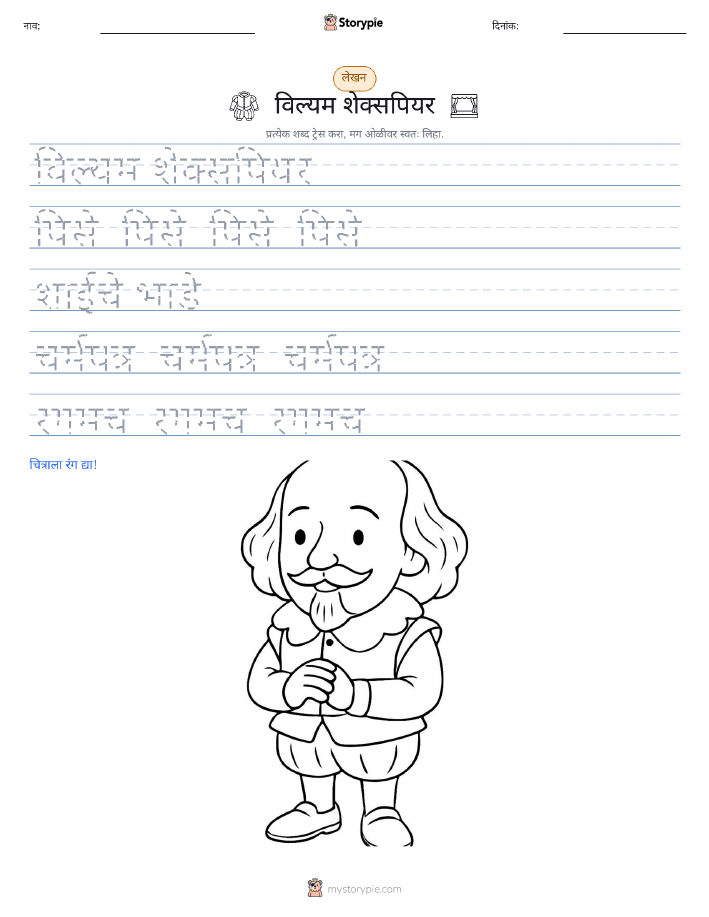 नाव:
Storypie
दिनांक:
लेखन
विल्यम शेक्सपियर
प्रत्येक शब्द ट्रेस करा, मग ओळीवर स्वतः लिहा.
विल्यम शेक्सपियर
पिसे पिसे पिसे पिसे
शाईचे भांडे
चर्मपत्र चर्मपत्र चर्मपत्र
रंगमंच रंगमंच रंगमंच
चित्राला रंग द्या!
mystorypie.com